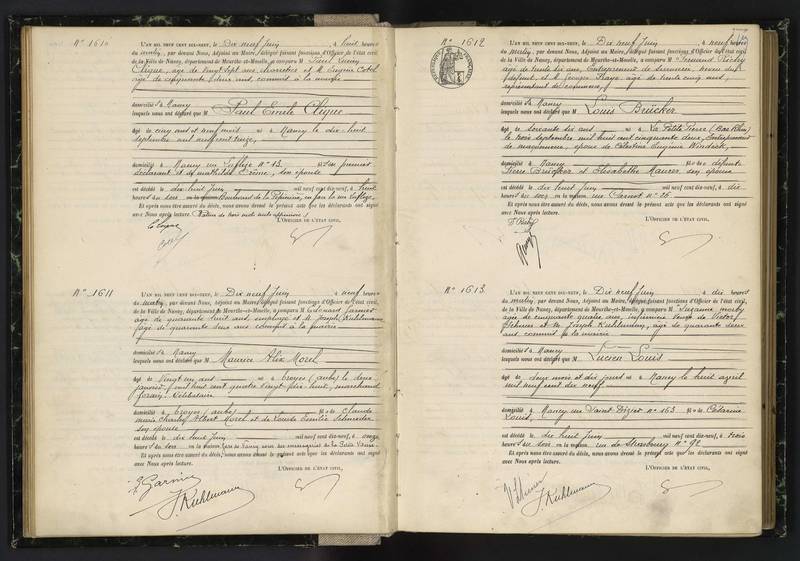 N° 1610
L'AN MIL NEUF CENT DIX-NEUF, le Dix neuf Juin, à huit heures
du matin, par devant Nous, Adjoint au Maire, délégué faisant fonctions d'Officier de l'état civil
de la Ville de Nancy, département de Meurthe-et-Moselle, a comparu M
Clègue, âgé de vingt sept ans, et M Eugène
âgé de cinquante ans commis à la mairie
domicilié à Nancy
lesquels nous ont déclaré que M Paul Emile Clègue
âgé de cinq ans et neuf mois né à Nancy le dix huit
septembre mil neuf cent treize,
domicilié à Nancy rue n° 13, fils de premier
déclarant et de Mathilde son épouse
est décédé le dix huit Juin mil neuf cent dix-neuf, à huit
heures du soir en la maison Boulevard de la Pépinière,
Et après nous être assuré du décès, nous avons dressé le présent acte que les déclarants ont signé
avec Nous après lecture.
L'OFFICIER DE L'ÉTAT CIVIL,
N° 1611
L'AN MIL NEUF CENT DIX-NEUF, le Dix neuf Juin, à neuf heures
du matin, par devant Nous, Adjoint au Maire, délégué faisant fonctions d'Officier de l'état civil
de la Ville de Nancy, département de Meurthe-et-Moselle, a comparu M Garnier
âgé de quarante huit ans, employé et M Joseph Kuhlmann
âgé de quarante deux ans commis à la mairie
domiciliés à Nancy
lesquels nous ont déclaré que M Maurice Alix Morel
âgé de Vingt un ans né à Troyes (Aube) le deux
janvier mil huit cent quatre vingt dix huit, marchand
forain, célibataire
domicilié à Troyes (Aube) fils de Claude
Marie Charles Albert Morel et de Louise Emilie Schneider
son épouse
est décédé le dix huit Juin mil neuf cent dix-neuf, à onze
heures du soir en la maison Gare de Nancy
Et après nous être assuré du décès, nous avons dressé le présent acte que les déclarants ont signé
avec Nous après lecture.
L'OFFICIER DE L'ÉTAT CIVIL,
Garnier
J. Kuhlmann
N° 1612
L'AN MIL NEUF CENT DIX-NEUF, le Dix neuf Juin, à neuf heures
du matin, par devant Nous, Adjoint au Maire, délégué faisant fonctions d'Officier de l'état civil
de la Ville de Nancy, département de Meurthe-et-Moselle, a comparu M Fernand
âgé de trente six ans, Entrepreneur de neveu du
défunt, et M Georges âgé de trente cinq ans,
représentant de commerce,
domiciliés à Nancy
lesquels nous ont déclaré que M Louis Brücker
âgé de soixante six ans né à La Petite Pierre (Bas Rhin)
le trois septembre mil huit cent cinquante deux, Entrepreneur
de maçonnerie, époux de Célestine Eugénie
domicilié à Nancy fils de défunts
Pierre Brücker et Elisabethe Maurer son épouse
est décédé le dix huit Juin mil neuf cent dix-neuf, à dix
heures du soir en la maison rue Carnot n° 26
Et après nous être assuré du décès, nous avons dressé le présent acte que les déclarants ont signé
avec Nous après lecture.
L'OFFICIER DE L'ÉTAT CIVIL,
N° 1613
L'AN MIL NEUF CENT DIX-NEUF, le Dix neuf Juin, à dix heures
du matin, par devant Nous, Adjoint au Maire, délégué faisant fonctions d'Officier de l'état civil
de la Ville de Nancy, département de Meurthe-et-Moselle, a comparu M Suzanne
âgée de cinquante quatre ans infirmière Veuve de Victor
et M Joseph Kuhlmann, âgé de quarante deux
ans commis à la mairie
domiciliés à Nancy
lesquels nous ont déclaré que M Lucien Louis
âgé de deux mois et dix jours né à Nancy le huit avril
mil neuf cent dix neuf
domicilié à Nancy rue Saint Dizier n° 163 fils de Catherine
Louis,
est décédé le dix huit Juin mil neuf cent dix-neuf, à trois
heures du soir en la maison rue de Strasbourg n° 92
Et après nous être assuré du décès, nous avons dressé le présent acte que les déclarants ont signé
avec Nous après lecture.
L'OFFICIER DE L'ÉTAT CIVIL,
J. Kuhlmann